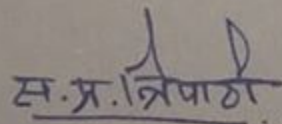 स. प्र. त्रिपाठी